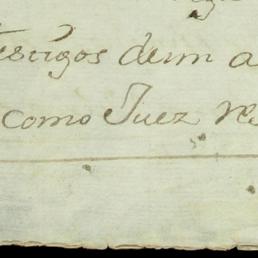 testigos de mi a
como Juez re